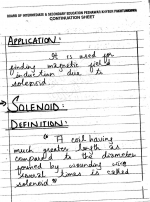 BOARD OF INTERMEDIATE & SECONDARY EDUCATION PESHAWAR KHYBER PAKHTUNKHWA
CONTINUATION SHEET
APPLICATION:
It is used for
finding magnetic field
induction due to
solenoid.
SOLENOID:
DEFINITION:
"A coil having
much greater length as
compared to the diameter
formed by wounding wire
several times is called
solenoid"